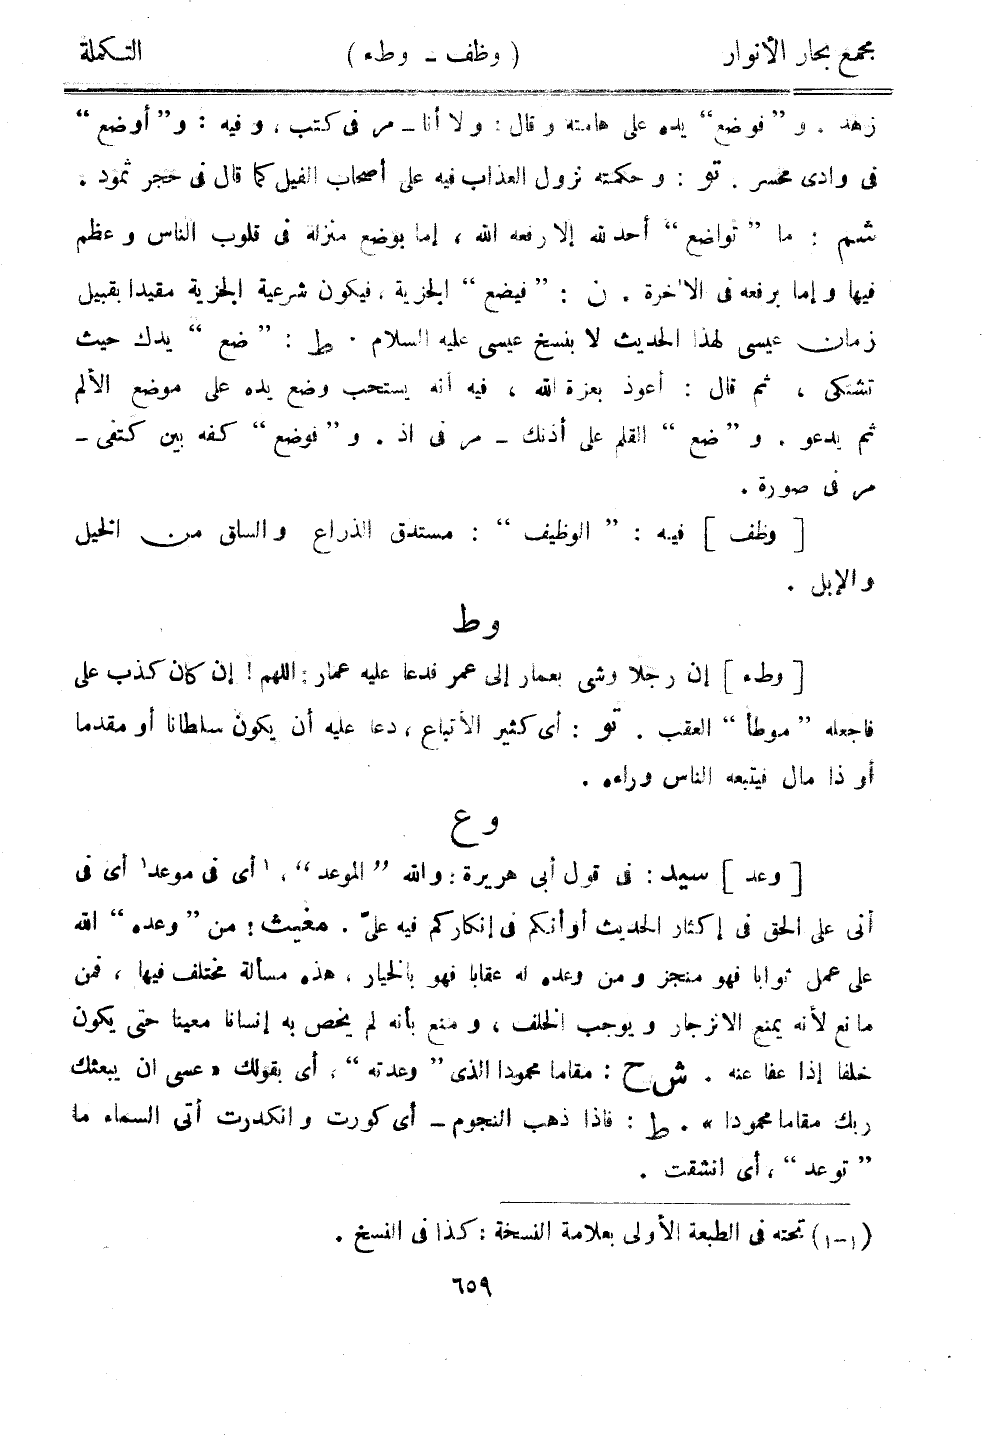 مجمع بحار الأنوار ( وظف ـ وطء ) التكملة
زهد . و ” فوضع “ يده على هامته وقال : ولا أنا ـ مر فى كتب ، وفيه : و ” أوضع “
فى وادى محسر . تو : وحكمته نزول العذاب فيه على أصحاب الفيل كما قال فى حجر ثمود .
شم : ما ” تواضع “ أحد لله إلا رفعه الله ، إما بوضع منزلة فى قلوب الناس وعظم
فيها وإما برفعه فى الآخرة . ن : ” فيضع “ الجزية ، فيكون شرعية الجزية مقيدا بقبيل
زمان عيسى لهذا الحديث لا بنسخ عيسى عليه السلام . ط : ” ضع “ يدك حيث
تشتكى ، ثم قال : أعوذ بعزة الله ، فيه أنه يستحب وضع يده على موضع الألم
ثم يدعو . و ” ضع “ القلم على أذنك ـ مر فى اذ . و ” فوضع “ كفه بين كتفى ـ
مر فى صورة .
[ وظف ] فيه : ” الوظيف “ : مستدق الذراع والساق من الخيل
والإبل .
وط
[ وطء ] إن رجلا وشى بعمار إلى عمر فدعا عليه عمار : اللهم ! إن كان كذب على
فاجعله ” موطأ “ العقب . تو : أى كثير الأتباع ، دعا عليه أن يكون سلطانا أو مقدما
أو ذا مال فيتبعه الناس وراءه .
وع
[ وعد ] سيد : فى قول أبى هريرة : والله ” الموعد “ ، ١ أى فى موعد١ أى فى
أنى على الحق فى إكثار الحديث أو أنكم فى إنكاركم فيه علىّ . مغيث : من ” وعده “ الله
على عمل ثوابا فهو منجز ومن وعده له عقابا فهو بالخيار ، هذه مسألة مختلف فيها ، فمن
مانع لأنه يمنع الانزجار ويوجب الخلف ، ومنع بأنه لم يخص به إنسانا معينا حتى يكون
خلفا إذا عفا عنه . ش ح : مقاما محمودا الذى ” وعدته “ ، أى بقولك « عسى ان يبعثك
ربك مقاما محمودا » . ط : فاذا ذهب النجوم ـ أى كورت وانكدرت أتى السماء ما
” توعد “ ، أى انشقت .
(١-١) تحته فى الطبعة الأولى بعلامة النسخة : كذا فى النسخ .
٦٥٩